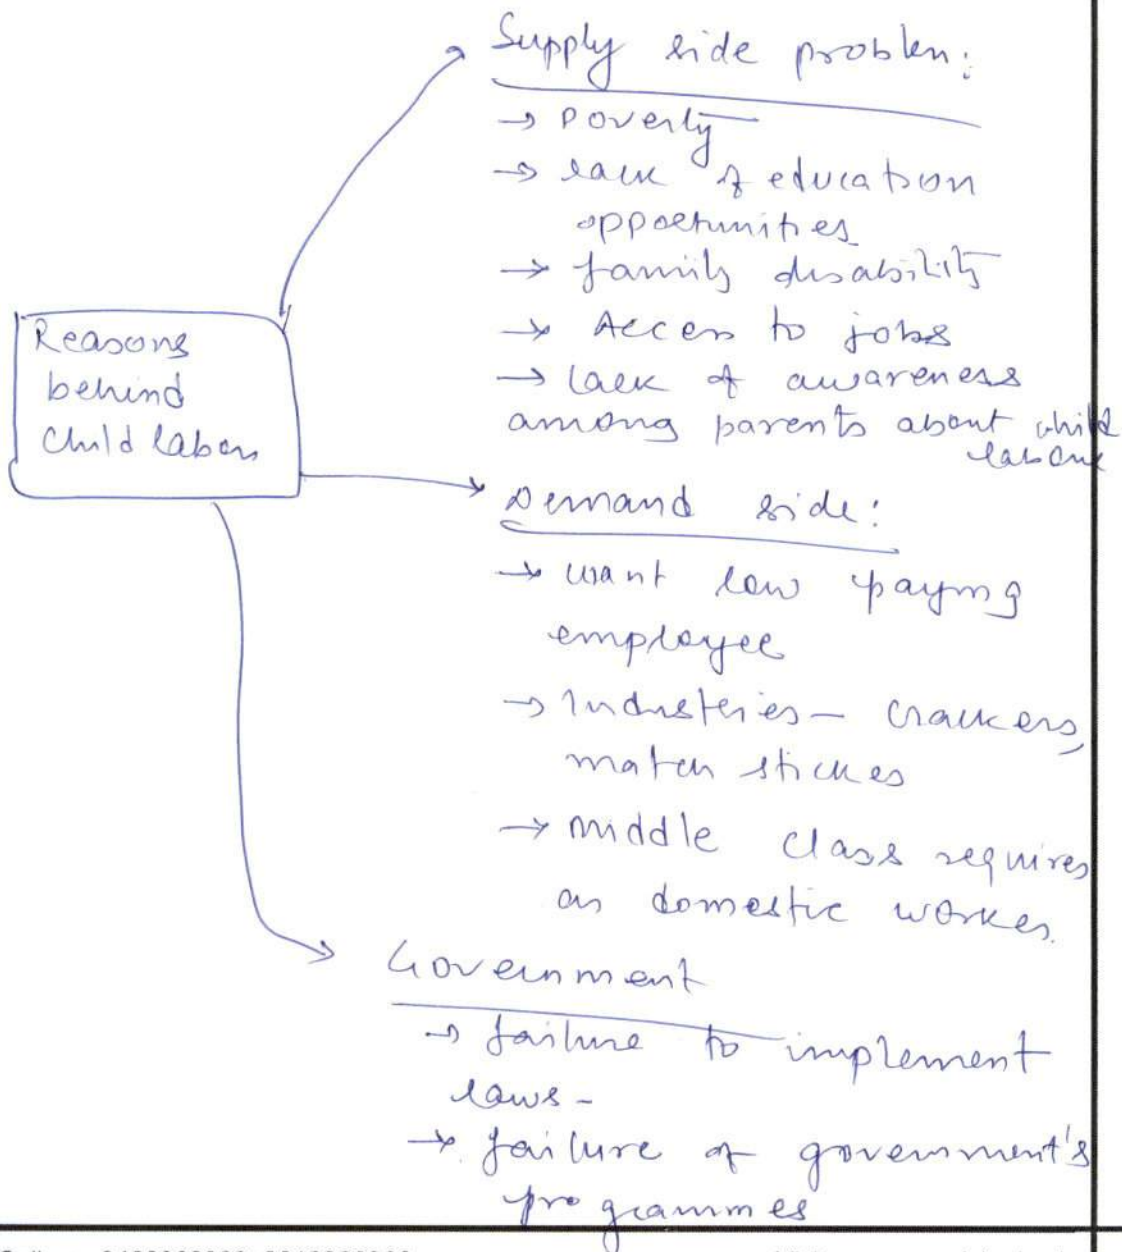 Supply side problem:
→ Poverty
→ lack of education
opportunities
→ family disability
→ Access to jobs
→ Lack of awareness
among parents about child
labour
Reasons
behind
Child labour
Demand side:
→ want low paying
employee
→ Industeries - Crackers,
match stickes
→ Middle Class requires
as domestic workes.
Government
→ failure to implement
laws -
→ failure of government's
programmes